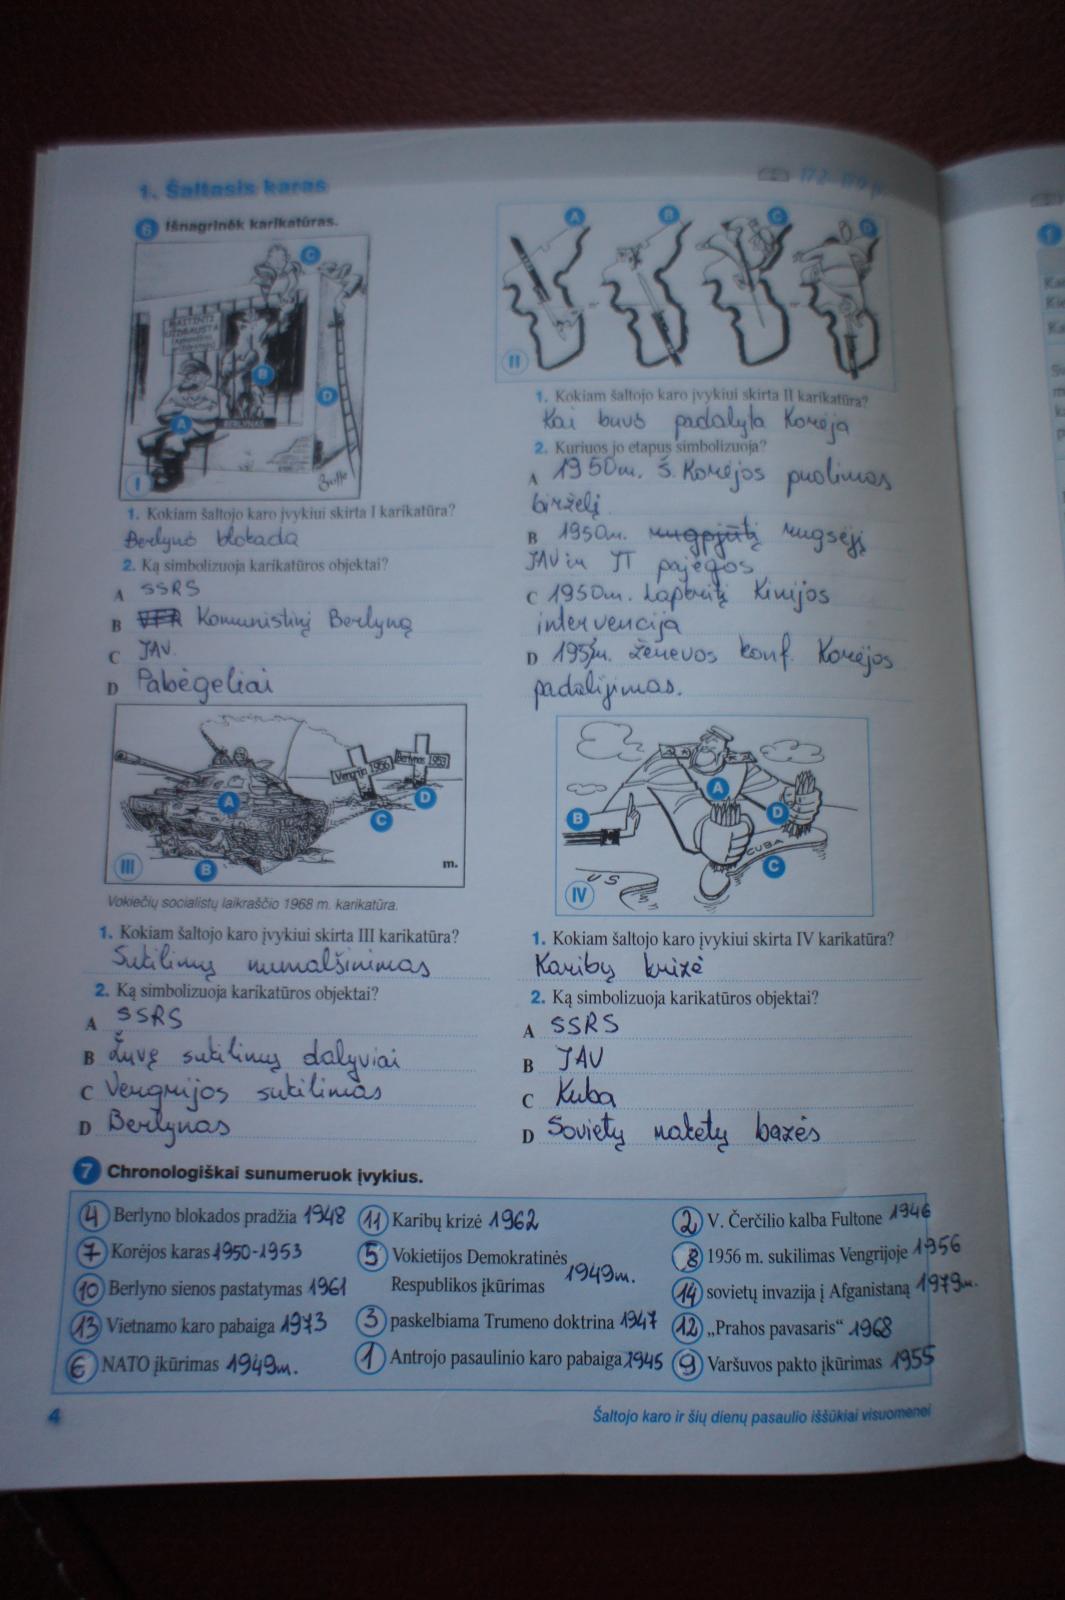 1. Šaltasis karas
172-179 p.
6 Išnagrinėk karikatūras.
C
MAITINTI
UŽDRAUSTA
B
A
D
BERLYNAS
I
1. Kokiam šaltojo karo įvykiui skirta I karikatūra?
Berlyno blokada
2. Ką simbolizuoja karikatūros objektai?
A SSRS
B Komunistinį Berlyną
C JAV.
D Pabėgeliai
A B C D
II
1. Kokiam šaltojo karo įvykiui skirta II karikatūra?
Kai buvo padalyta Korėja
2. Kuriuos jo etapus simbolizuoja?
A 1950m. Š. Korėjos puolimas
birželį
B 1950m. rugpjūtį rugsėjį
JAV ir JT pajėgos
C 1950m. Lapkritį Kinijos
intervencija
D Ženevos konf. Korėjos
padalijimas.
Vengrija 1956
Berlynas 1953
A
D
C
B
III
m.
Vokiečių socialistų laikraščio 1968 m. karikatūra.
1. Kokiam šaltojo karo įvykiui skirta III karikatūra?
Sukilimų numalšinimas
2. Ką simbolizuoja karikatūros objektai?
A SSRS
B Žuvę sukilimų dalyviai
C Vengrijos sukilimas
D Berlynas
A
B
D
CUBA
C
US
IV
1. Kokiam šaltojo karo įvykiui skirta IV karikatūra?
Karibų krizė
2. Ką simbolizuoja karikatūros objektai?
A SSRS
B JAV
C Kuba
D Sovietų raketų bazės
7 Chronologiškai sunumeruok įvykius.
4 Berlyno blokados pradžia 1948
7 Korėjos karas 1950-1953
10 Berlyno sienos pastatymas 1961
13 Vietnamo karo pabaiga 1973
6 NATO įkūrimas 1949m.
11 Karibų krizė 1962
5 Vokietijos Demokratinės
Respublikos įkūrimas 1949m.
3 paskelbiama Trumeno doktrina 1947
1 Antrojo pasaulinio karo pabaiga 1945
2 V. Čerčilio kalba Fultone 1946
8 1956 m. sukilimas Vengrijoje 1956
14 sovietų invazija į Afganistaną 1979m.
12 „Prahos pavasaris“ 1968
9 Varšuvos pakto įkūrimas 1955
4
Šaltojo karo ir šių dienų pasaulio iššūkiai visuomenei